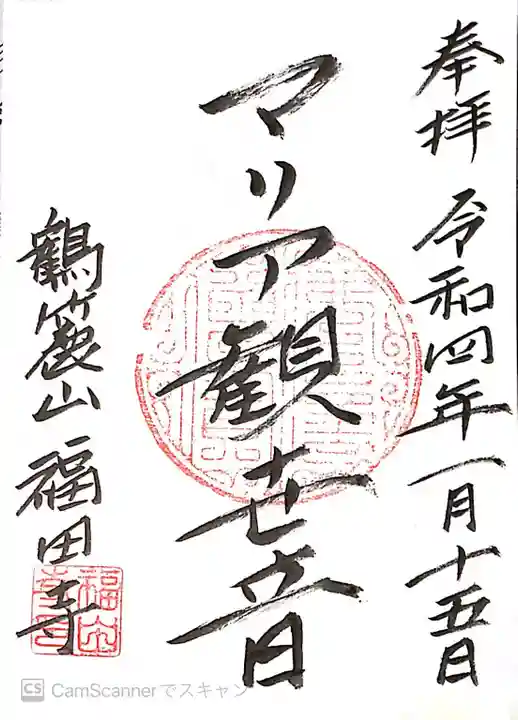 奉拝 令和四年一月十五日
マリア観世音
鶴簏山 福田寺
CS CamScannerでスキャン